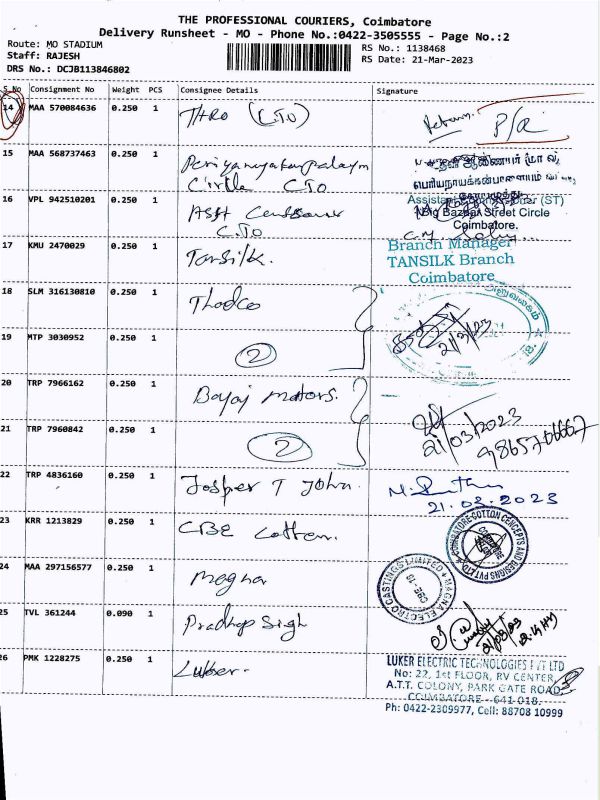 THE PROFESSIONAL COURIERS, Coimbatore
Delivery Runsheet - MO - Phone No.:0422-3505555 - Page No.:2
Route: MO STADIUM
Staff: RAJESH
DRS No.: DCJB113846802
RS No.: 1138468
RS Date: 21-Mar-2023
S.No Consignment No Weight PCS Consignee Details Signature
14 MAA 570084636 0.250 1 THRO (CTO) Return P/A
15 MAA 568737463 0.250 1 Periyanayakanpalaym
Circle CTO
16 VPL 942510201 0.250 1
CTO
Assistant (ST)
Big Bazaar Street Circle
Coimbatore.
17 KMU 2470029 0.250 1 Tansilk.
Branch Manager
TANSILK Branch
Coimbatore
18 SLM 316130810 0.250 1 Thadco
21/3/23
19 MTP 3030952 0.250 1 2
20 TRP 7966162 0.250 1 Bajaj motors.
21/03/2023
21 TRP 7960842 0.250 1 2
22 TRP 4836160 0.250 1 Josper T John.
21.03.2023
23 KRR 1213829 0.250 1 CBE Cotton.
COIMBATORE COTTON CONCEPTS AND DESIGNS PVT LTD
24 MAA 297156577 0.250 1 Magna
MAGNA ELECTRO CASTINGS LIMITED
CBE - 18
25 TVL 361244 0.090 1 Pradhap Sigh
26 PMK 1228275 0.250 1 Luker.
LUKER ELECTRIC TECHNOLOGIES PVT LTD
No: 22, 1st FLOOR, RV CENTER,
A.T.T. COLONY, PARK GATE ROAD,
COIMBATORE - 641 018.
Ph: 0422-2309977, Cell: 88708 10999